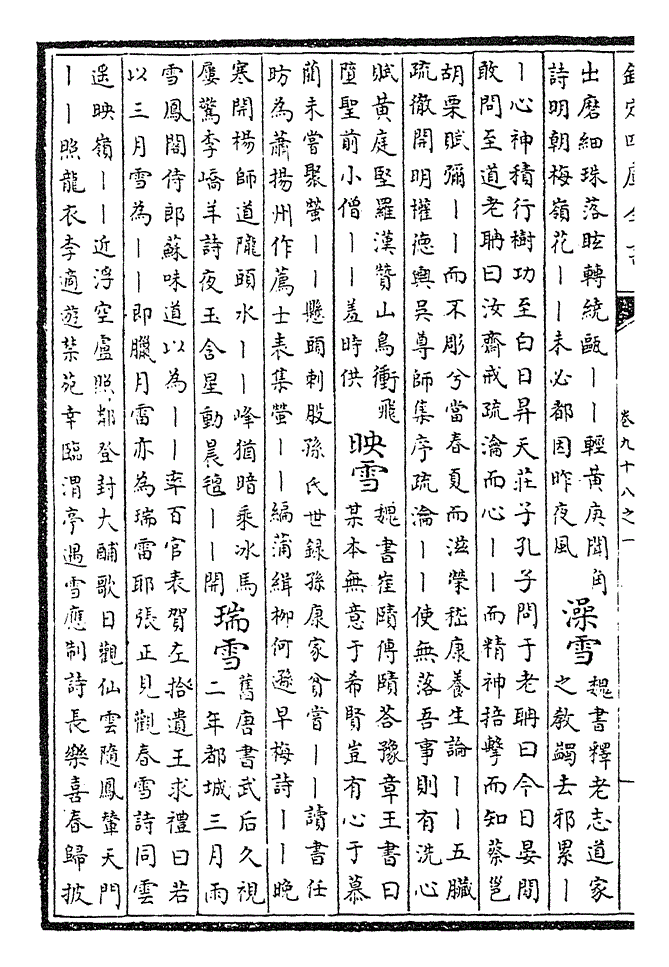 欽定四庫全書
卷九十八之一
出磨細珠落眩轉繞甌丨丨輕黄庚聞角
詩明朝梅嶺花丨丨未必都因昨夜風
澡雪
魏書釋老志道家
之教蠲去邪累丨
丨心神積行樹功至白日昇天莊子孔子問于老聃曰今日晏閒
敢問至道老聃曰汝齋戒疏瀹而心丨丨而精神掊擊而知蔡邕
胡栗賦彌丨丨而不彫兮當春夏而滋榮嵇康養生論丨丨五臟
疏徹開明權德輿吳尊師集序疏瀹丨丨使無落吾事則有洗心
賦黄庭堅羅漢贊山鳥衝飛
墮聖前小僧丨丨羞時供
映雪
魏書崔賾傳賾荅豫章王書曰
某本無意于希賢豈有心于慕
藺未嘗聚螢丨丨懸頭刺股孫氏世録孫康家貧嘗丨丨讀書任
昉為蕭揚州作薦士表集螢丨丨編蒲緝柳何遜早梅詩丨丨晚
寒開楊師道隴頭水丨丨峰猶暗乘冰馬
屢驚李嶠羊詩夜玉含星動晨氊丨丨開
瑞雪
舊唐書武后久視
二年都城三月雨
雪鳳閣侍郎蘇味道以為丨丨率百官表賀左拾遺王求禮曰若
以三月雪為丨丨即臘月雷亦為瑞雷耶張正見觀春雪詩同雲
遥映嶺丨丨近浮空盧照鄰登封大酺歌日觀仙雲隨鳳輦天門
丨丨照龍衣李適遊禁苑幸臨渭亭遇雪應制詩長樂喜春歸披